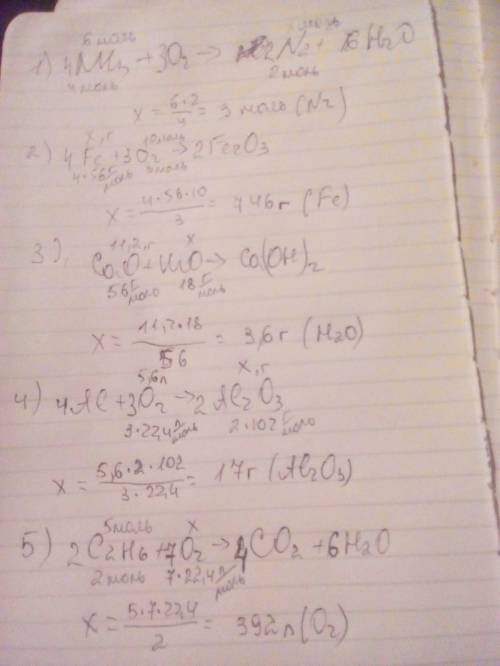 6 моль x моль
1) 4NH3 + 3O2 → 2N2 + 6H2O
4 моль 2 моль
x = 6·2/4 = 3 моль (N2)
x, г 10 моль
2) 4Fe + 3O2 → 2Fe2O3
4·56 г/моль 3 моль
x = 4·56·10/3 = 746 г (Fe)
11,2, г x
3) CaO + H2O → Ca(OH)2
56 г/моль 18 г/моль
x = 11,2·18/56 = 3,6 г (H2O)
5,6 л x, г
4) 4Al + 3O2 → 2Al2O3
3·22,4 л/моль 2·102 г/моль
x = 5,6·2·102/3·22,4 = 17 г (Al2O3)
5 моль x
5) 2C2H6 + 7O2 → 4CO2 + 6H2O
2 моль 7·22,4 л/моль
x = 5·7·22,4/2 = 392 л (O2)